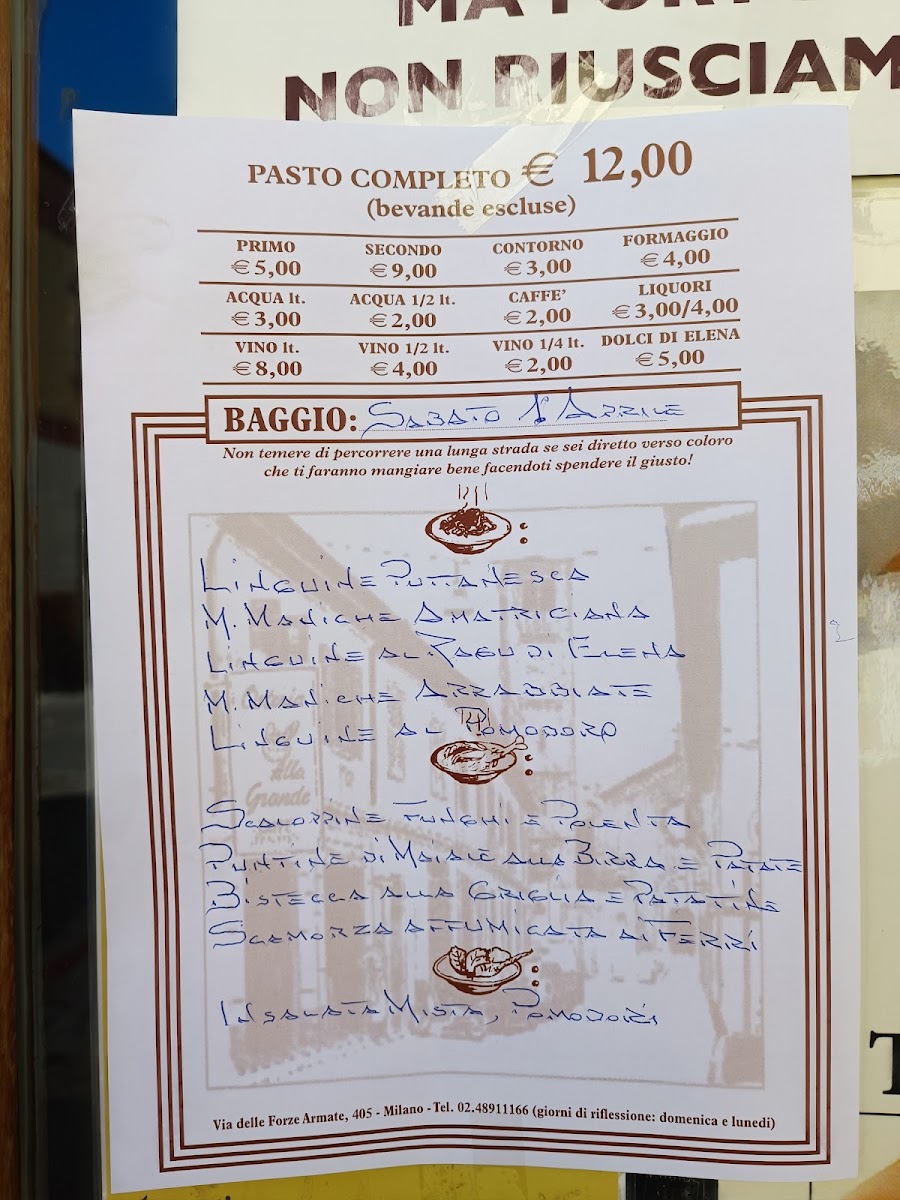 NON RIUSCIAM
PASTO COMPLETO € 12,00
(bevande escluse)
PRIMO SECONDO CONTORNO FORMAGGIO
€ 5,00 € 9,00 € 3,00 € 4,00
ACQUA lt. ACQUA 1/2 lt. CAFFE' LIQUORI
€ 3,00 € 2,00 € 2,00 € 3,00/4,00
VINO lt. VINO 1/2 lt. VINO 1/4 lt. DOLCI DI ELENA
€ 8,00 € 4,00 € 2,00 € 5,00
BAGGIO: SABATO APRILE
Non temere di percorrere una lunga strada se sei diretto verso coloro
che ti faranno mangiare bene facendoti spendere il giusto!
LINGUINE PUTTANESCA
M. MANICHE AMATRICIANA
LINGUINE AL RAGU DI ELENA
M. MANICHE ARRABBIATE
LINGUINE AL POMODORO
Alla
Grande
SCALOPPINE FUNGHI E POLENTA
PUNTINE DI MAIALE ALLA BIRRA E PATATE
BISTECCA ALLA GRIGLIA E PATATINE
SCAMORZA AFFUMICATA AI FERRI
INSALATA MISTA, POMODORI
Via delle Forze Armate, 405 - Milano - Tel. 02.48911166 (giorni di riflessione: domenica e lunedì)